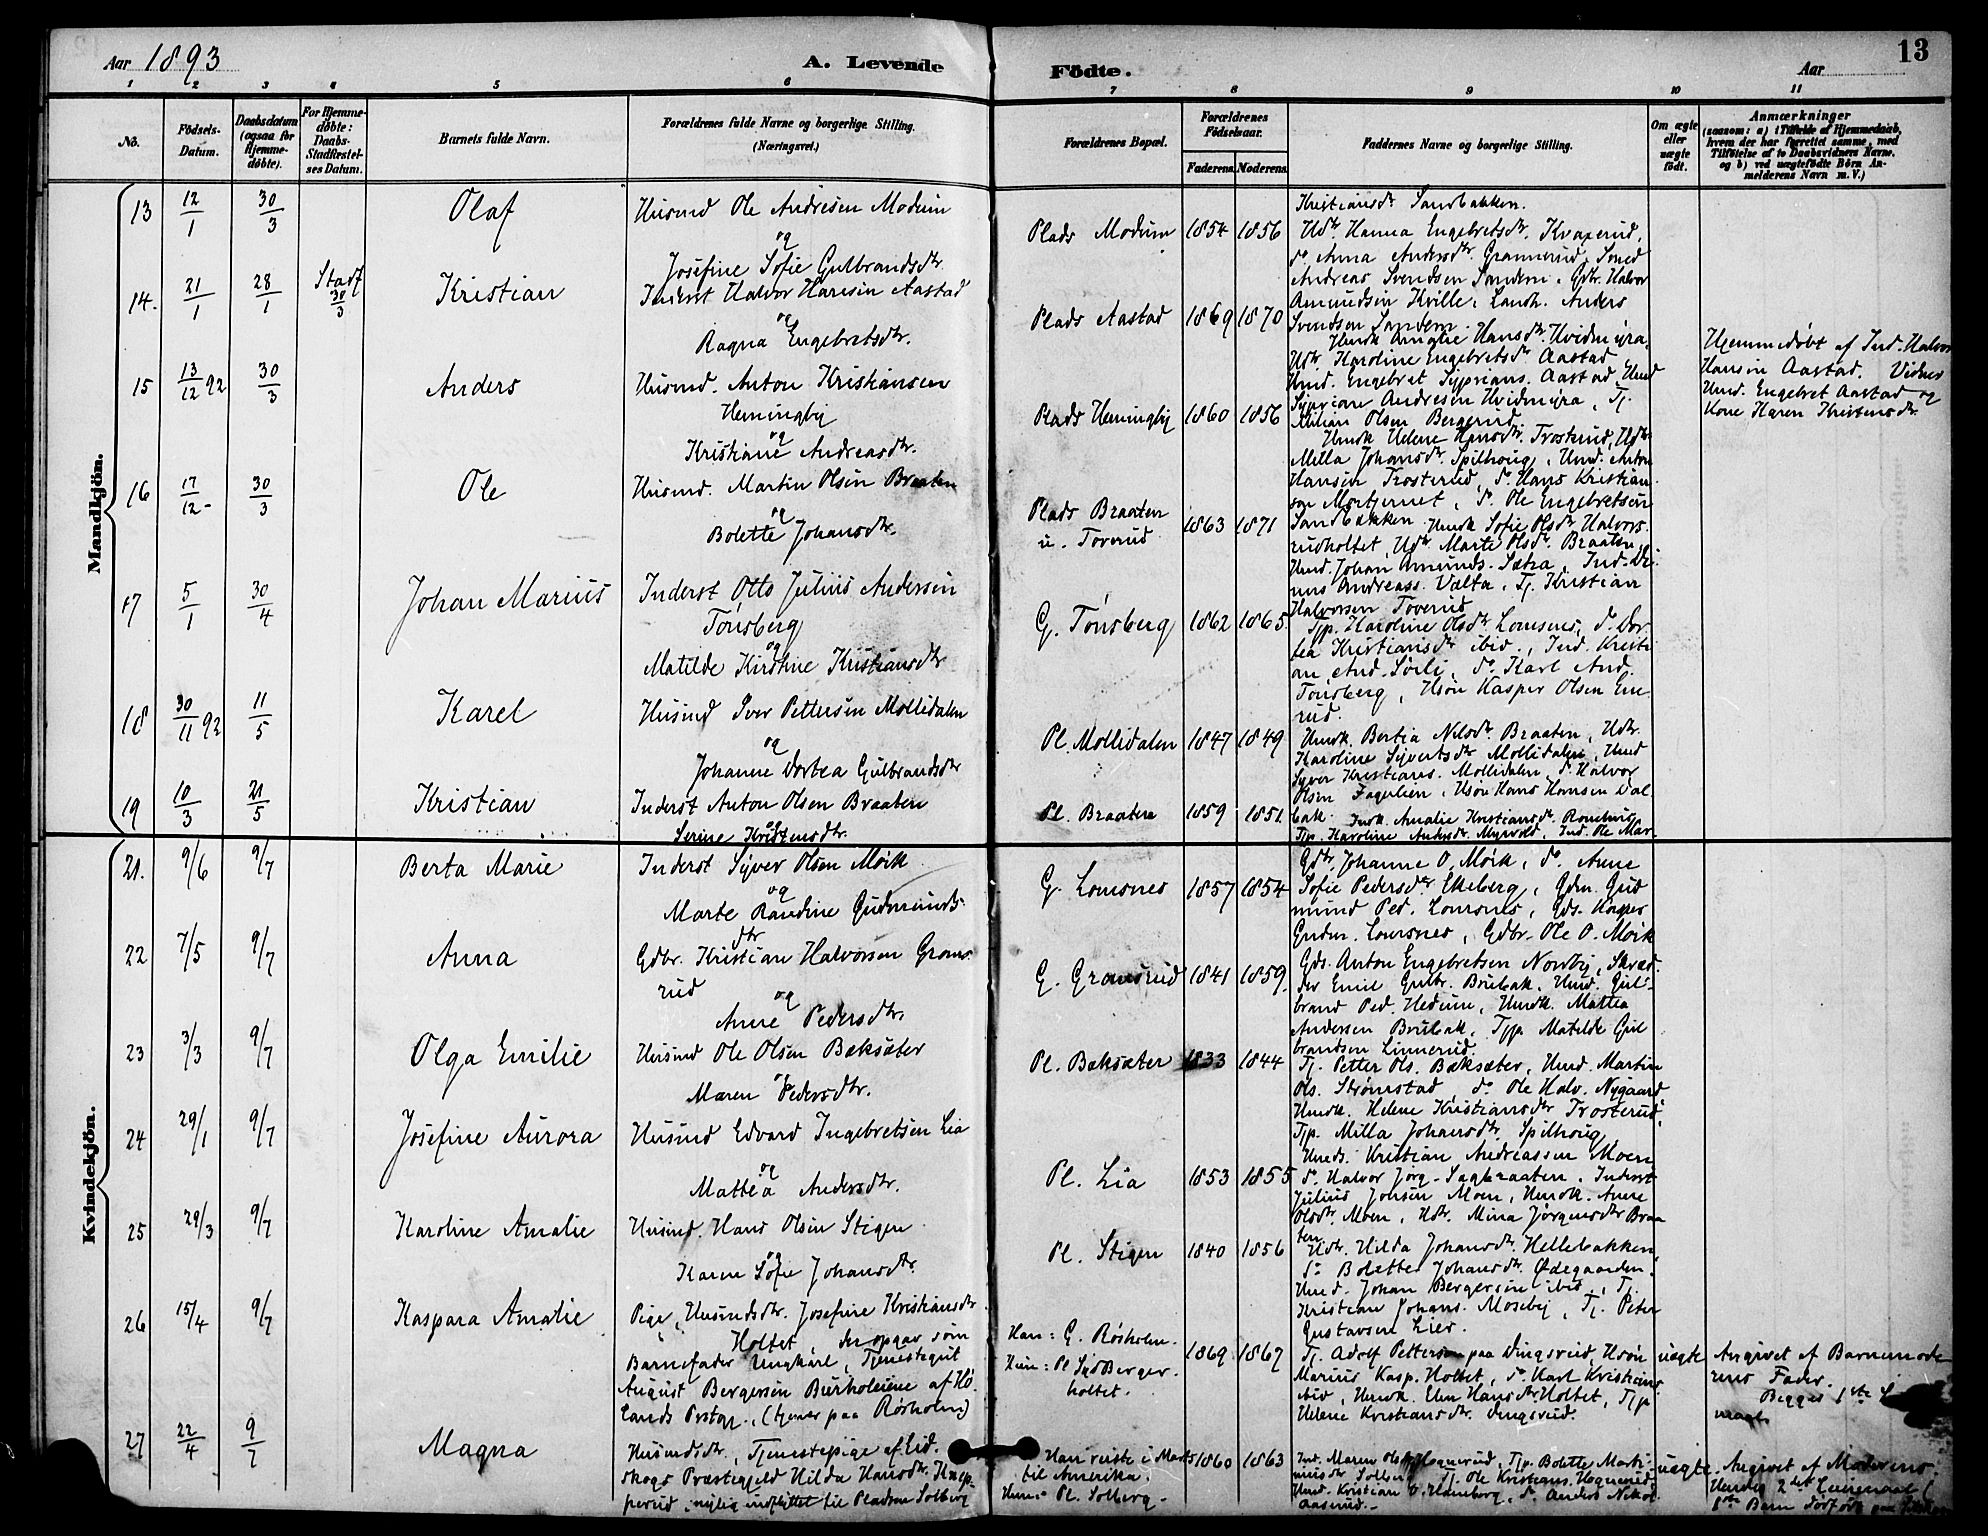 Aar 1893 A. Levende Fødte. Aar 13
1 2 3 4 5 6 7 8 9 10 11
No. Fødsels-Datum. Daabsdatum (ogsaa for Hjemme-døbte). For Hjemme-døbte: Daabs-Stadfæstelses Datum. Barnets fulde Navn. Forældrenes fulde Navne og borgerlige Stilling. (Næringsvei.) Forældrenes Bopæl. Forældrenes Fødselsaar. Faderens. Moderens. Faddernes Navne og borgerlige Stilling. Om ægte eller uægte født. Anmærkninger (saasom: a) i Tilfælde af Hjemmedaab, hvem der har forrettet samme, med Tilføielse af to Daabsvidners Navne, og b) ved uægtefødte Børn Anmelderens Navn m. V.)
Mandkjön.
13 12/1 30/3 Olaf Husmd Ole Andresen Modum
og
Josefine Sofie Gulbrandsdtr.
Plads Modum 1854 1856
Kristiansdr Sandbakken.
Udtr Hanna Engebretsdtr. Kvaperud,
do Anna Andersdtr. Grannerud, Smed
Andreas Svendsen Sandem. Gdbr. Halvor
Amundsen Kville, Landh. Anders
Svendsen Sandem.
14. 21/1 28/1 Stadf 30/3 Kristian Inderst Halvor Hansen Aastad
og
Ragna Engebretsdtr.
Plads Aastad 1869 1870
Husmk Amalie Hansdtr. Hvidmyra,
Udtr Karoline Engebretsdtr Aastad,
Husmd. Engebret Syprians. Aastad, Husmd
Syprian Andresen Hvidmyra, Tj.
Olsen Bergerud.
Hjemmedøbt af Ind. Halvor
Hansen Aastad. Vidner
Husmd. Engebret Aastad og
Kone Karen Kristensdtr.
15 13/12 92 30/3 Anders Husmd. Anton Kristiansen
Hemingby
og
Kristiane Andreasdtr.
Plads Hemingby 1860 1856
Husmk Helene Hansdtr. Trosterud, Udtr
Milla Johansdtr. Spilhoug, Husmd. Anton
Hansen Trosterud, do. Hans Kristian
sen Mortjernet, do. Ole Engebretsen
Sandbakken.
16 17/12 - 30/3 Ole Husmd. Martin Olsen Braaten
og
Bolette Johansdtr.
Plads Braaten
u. Toverud 1863 1871
Husmk Sofie Olsdtr Halvors
rudholtet, Udtr. Marte Olsdtr. Braaten,
Husmd. Johan Amunds. Sætra, Ind.
Andreass. Vælta, Tj. Kristian
Halvorsen Toverud
17 5/1 30/4 Johan Marius Inderst Otto Julius Andersen
Tønsberg
og
Matilde Kirstine Kristiansdtr
G. Tønsberg 1862 1865.
Tjp. Karoline Olsdtr Lomsnes, do Dor
tea Kristiansdtr ibid., Ind. Kristi
an And. Sørli, do. Karl And.
Tønsberg, Hsøn Kasper Olsen
rud.
18 30/11 92 11/5 Karel Husmd Iver Pettersen Mollidalen
og
Johanne Dortea Gulbrandsdtr
Pl. Mollidalen 1847 1849
Husmk. Bertia Nilsdtr Braaten, Udtr.
Karoline Syvertsdtr Mollidalen, Husmd
Syver Kristians. Mollidalen do. Halvor
Olsen Fagerlien, Hsøn Hans Hansen Dal
bak.
19 10/3 21/5 Kristian Inderst Anton Olsen Braaten
og
Serine Kristensdtr.
Pl. Braaten 1859 1851.
Indk. Amalie Kristiansdtr.
Tjp. Karoline Andersdtr. Myrvold, Ind. Ole Mar-
Kvindekjön.
21. 9/6 9/7 Berta Marie Inderst Syver Olsen Mørk
og
Marte Randine Gudmunds-
dtr
G. Lomsnes 1857 1854
Gdtr. Johanne O. Mørk, do. Anne
Sofie Pedersdtr Ekeberg, Gdm. Gud
mund Ped. Lomsnes, Gds. Kasper
Gudm. Lomsnes, Gdbr. Ole O. Mørk
22 7/5 9/7 Anna Gdbr. Kristian Halvorsen Grans
rud
og
Anne Pedersdtr.
G. Gransrud 1841 1859.
Gds. Anton Engebretsen Nordby, Skræd-
der Emil Gulbr. Brubak, Husmd. Gul-
brand Ped. Hedum, Husmk. Mattea
Andersen Brubak, Tjp Matilde Gul
brandsen Linnerud.
23 3/3 9/7 Olga Emilie Husmd Ole Olsen Bæksæter
og
Maren Pedersdtr.
Pl. Bæksæter 1833 1844
Tj. Petter Ols. Bæksæter, Husmd. Martin
Ols. Strømstad do. Ole Halv. Nygaard
Husmk. Helene Kristiansdtr Trosterud,
Tjp. Milla Johansdtr. Spilhoug.
24 29/1 9/7 Josefine Aurora Husmd Edvard Ingebretsen Lia
og
Mattea Andersdtr.
Pl. Lia 1853 1855
Husmds. Kristian Andreassen Moen
do. Halvor Jørg. Sagbraaten, Inderst
Julius Johsen Moen, Husmk. Anne
Olsdtr. Moen, Udtr. Mina Jørgensdtr Braa
ten.
25 29/3 9/7 Karoline Amalie Husmd. Hans Olsen Stigen
og
Karen Sofie Johansdtr.
Pl. Stigen 1840 1856
Udtr. Hilda Johansdtr. Hellebakken,
do Bolette Johansdtr. Ødegaarden.
Husmd. Johan Bergersen ibid, Tj.
Kristian Johans. Moseby, Tj. Peter
Gustavsen Lier.
26 15/4 9/7 Kaspara Amalie Pige, Husmdsdtr. Josefine Kristiansdtr.
Holtet, der opgav som
Barnefader Ungkarl, Tjenestegut
August Bergersen Burholeiene af Hø
lands Prstgj., (tjener paa Røsholm)
Han: G. Røsholm.
Hun: Pl Sød Berger
holtet.
1869 1867
Tj. Adolf Pettersen paa Dingsrud, Hsøn
Marius Kasp. Holtet, do Karl Kristians
ibid, Husmk. Elen Hansdtr Holtet, Tjp
Helene Kristiansdtr. Dingsrud.
uægte Angivet af Barnemode
rens Fader.
Begges 1ste
27 22/4 9/7 Magna Husmdsdtr., Tjenestepige af Eid.
skogs Præstegjeld Hilda Hansdtr. Knap
perud, nylig indflyttet til Pladsen Solberg
Han reiste i Marts
til Amerika.
Hun: Pl. Solberg.
1860 1863
Ind. Maren Olsdtr Hognerud, Tjp. Bolette Marti-
nusdtr Solberg, Tj. Ole Kristians. Hognerud,
Husmd. Kristian do. Anders Nikol.
Aaserud.
uægte. Angivet af Moderens.
Hendes 2det Leiermaal (
1ste Barn dødfødt paa